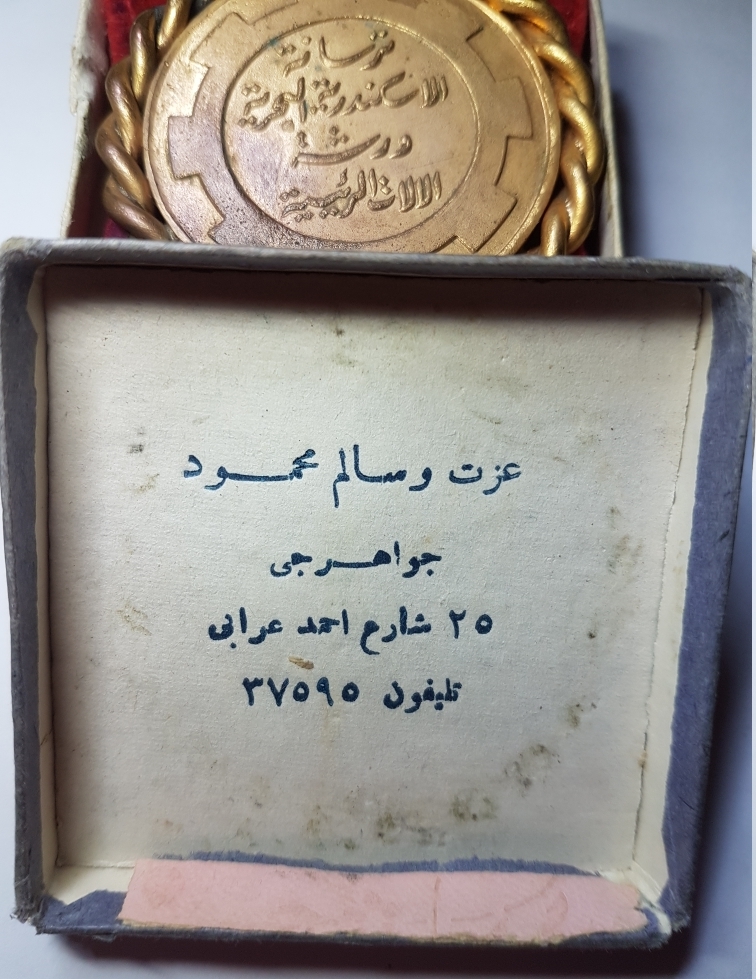 ترسانة
الاسكندرية البحرية
ورشة
الالات الرئيسية
عزت وسالم محمود
جواهرجى
٢٥ شارع احمد عرابى
تليفون ٣٧٥٩٥